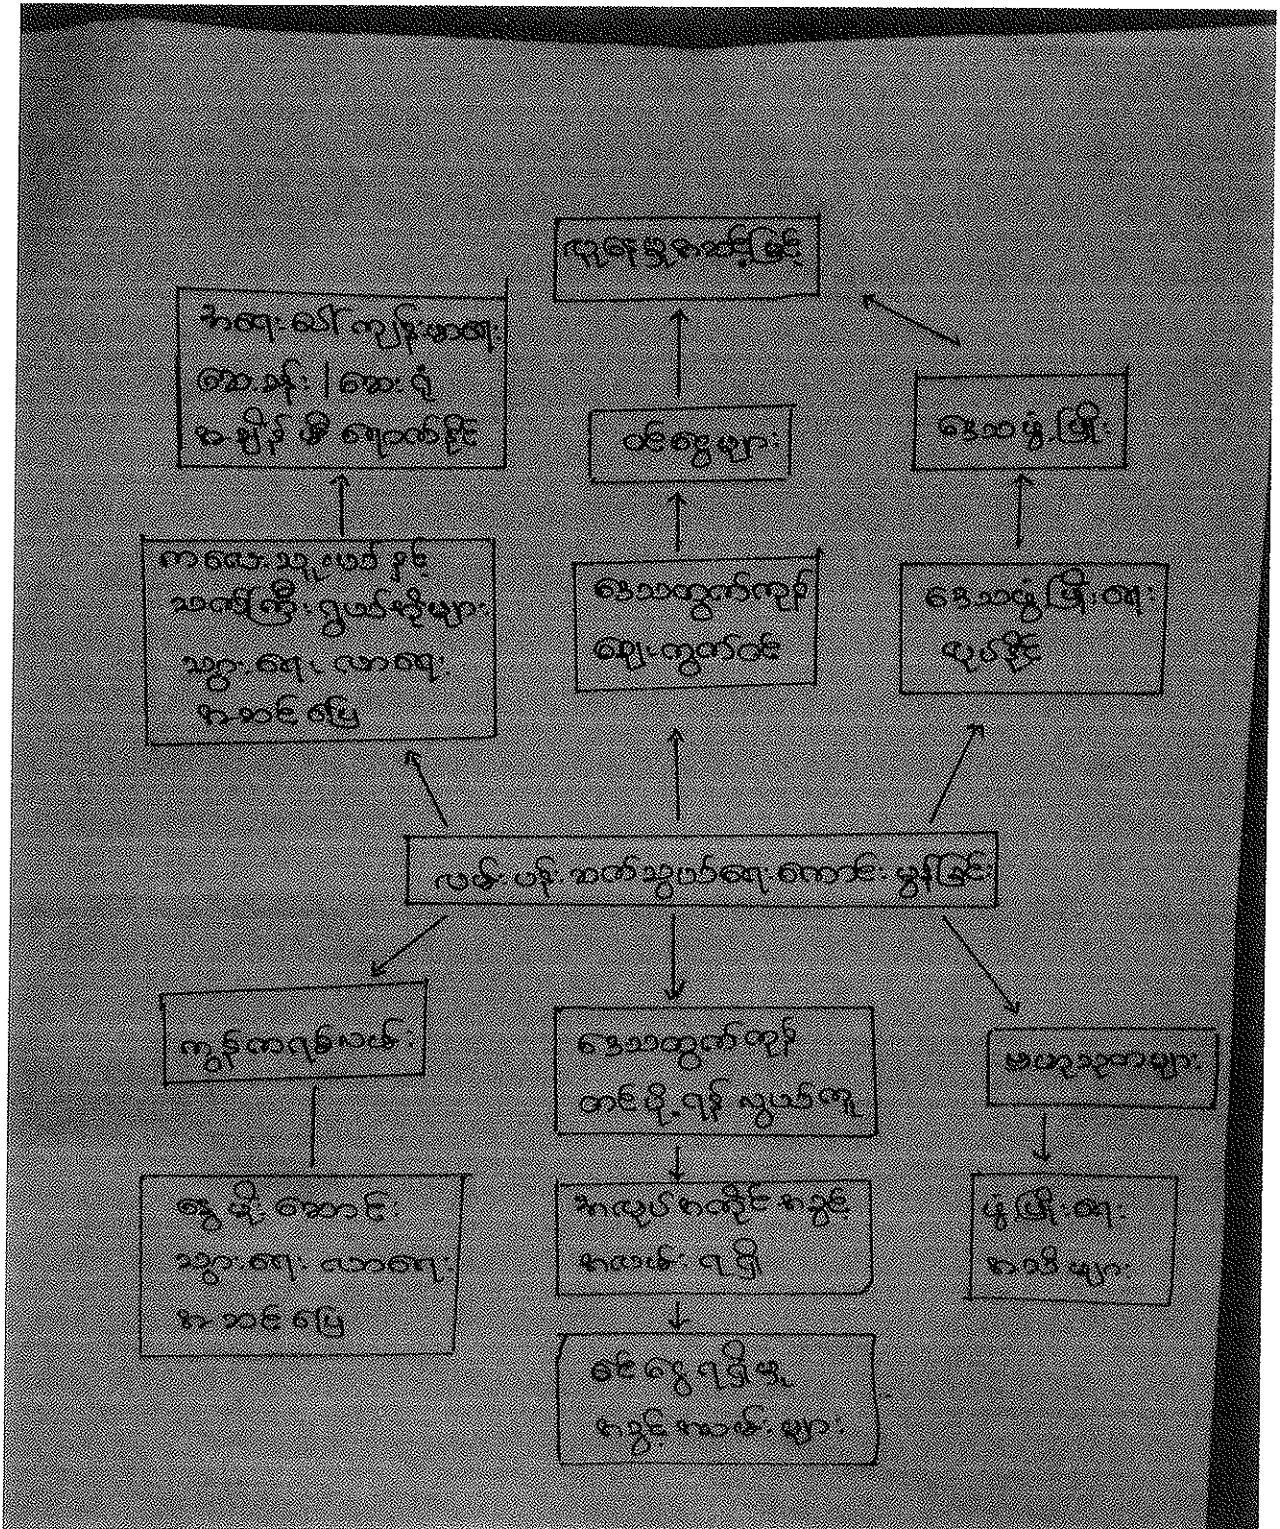 လူနေမှုအဆင့်မြင့်
အရေးပေါ် ကျန်းမာရေး
ဆေးခန်း / ဆေးရုံ
အချိန် မှီ ရောက်နိုင်
ဝင်ငွေများ
ဒေသဖွံ့ဖြိုး
ကလေးသူငယ် နှင့်
သက်ကြီးရွယ်အိုများ
သွားရေး လာရေး
အဆင်ပြေ
ဒေသထွက်ကုန်
ဈေးကွက်ဝင်
ဒေသဖွံ့ဖြိုးရေး
လုပ်နိုင်
လမ်းပန်းဆက်သွယ်ရေးကောင်းမွန်ခြင်း
ကွန်ကရစ်လမ်း
ဒေသထွက်ကုန်
တင်ပို့ရန် လွယ်ကူ
ဗဟုသုတများ
နွေ မိုး ဆောင်း
သွားရေး လာရေး
အဆင်ပြေ
အလုပ်အကိုင်အခွင့်
အလမ်း ရရှိ
ဖွံ့ဖြိုးရေး
အသိများ
ဝင်ငွေရရှိမှု
အခွင့်အလမ်းများ